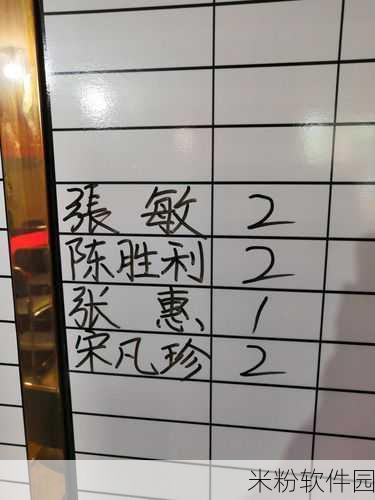 張敏 2
陈胜利 2
张惠 1
宋凡珍 2
米粉软件园